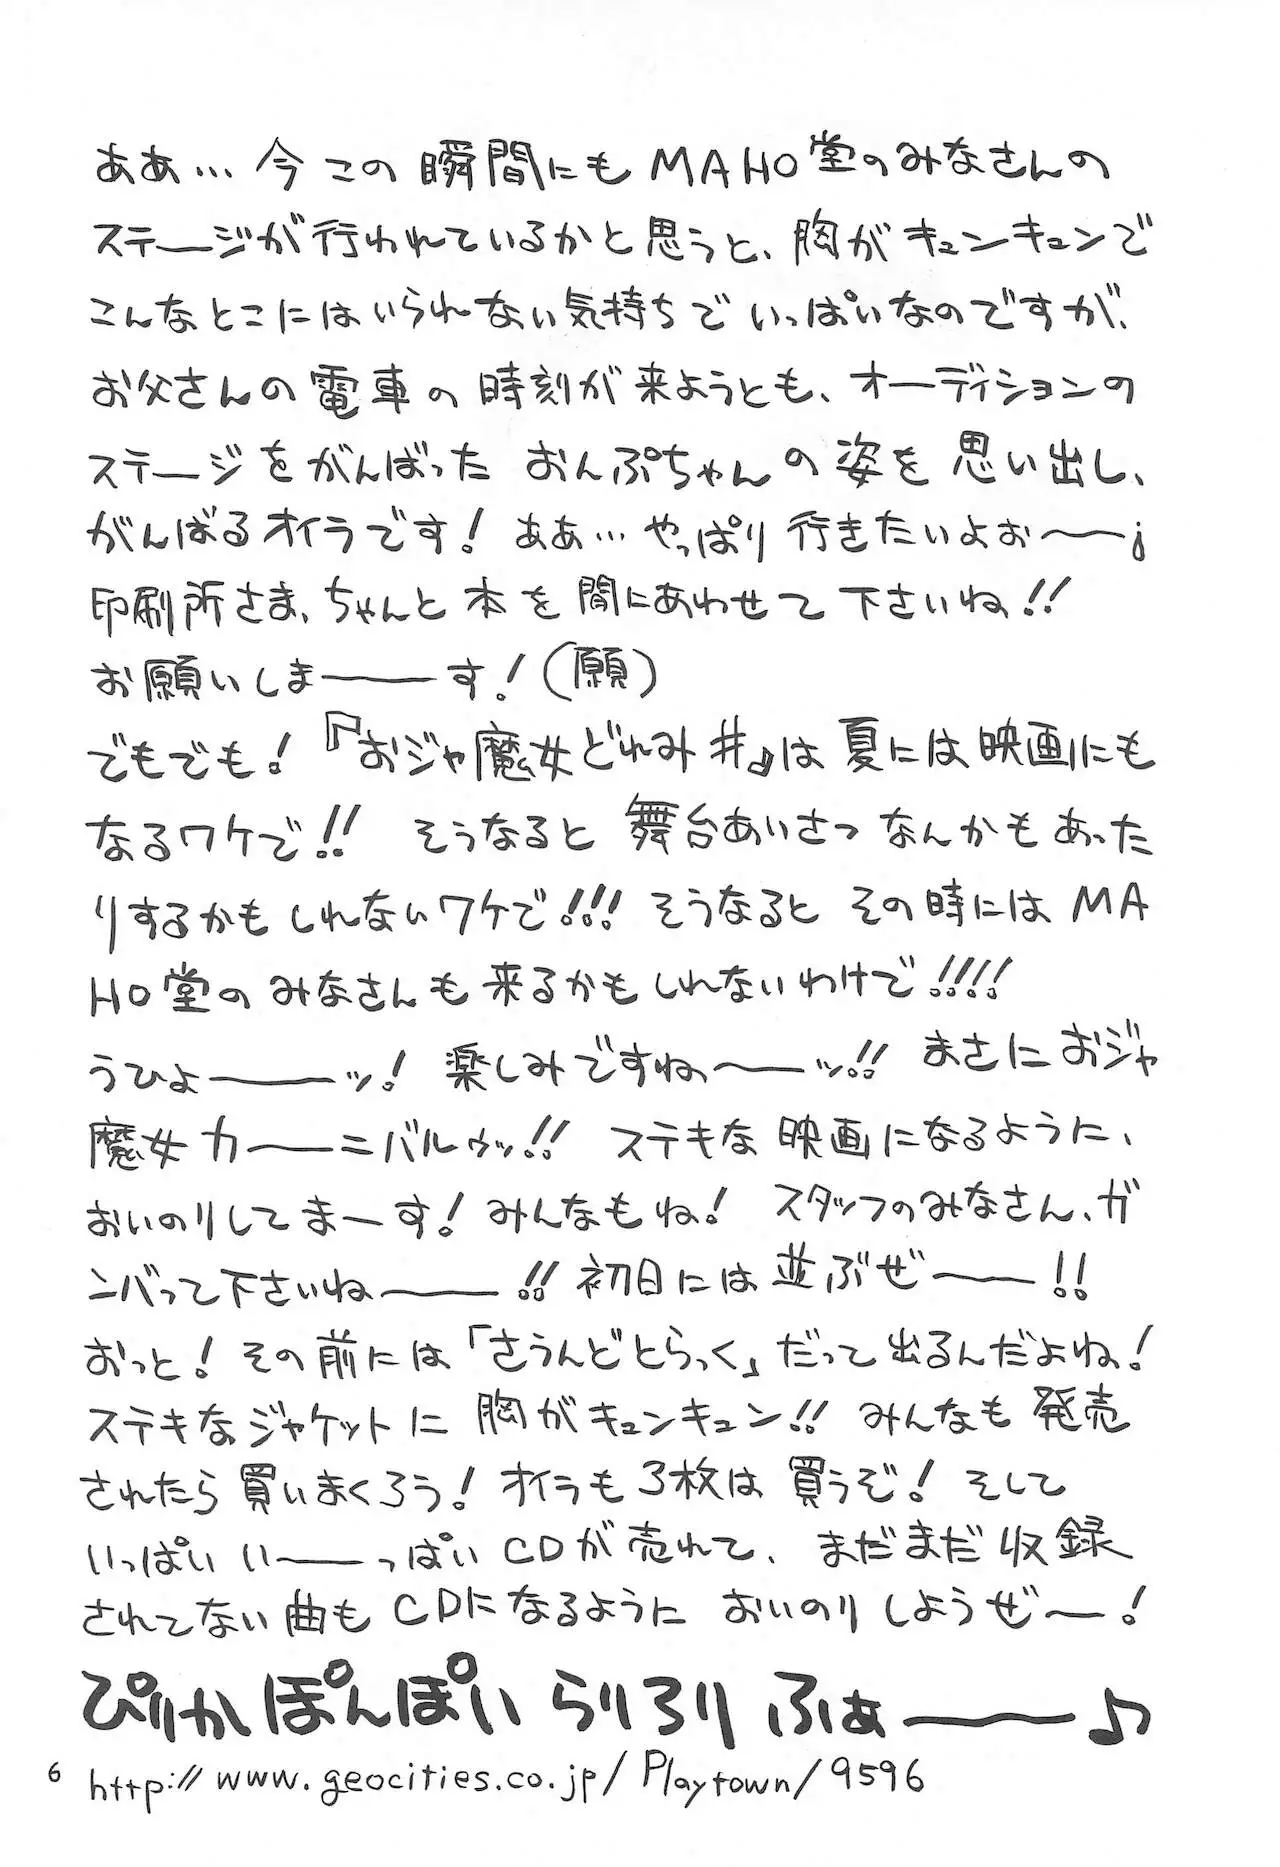 ああ…今この瞬間にもMAHO堂のみなさんの
ステージが行われているかと思うと、胸がキュンキュンで
こんなとこにはいられない気持ちでいっぱいなのですが、
お父さんの電車の時刻が来ようとも、オーディションの
ステージをがんばったおんぷちゃんの姿を思い出し、
がんばるオイラです!ああ…やっぱり行きたいよぉ〜〜¡
印刷所さま、ちゃんと本を間にあわせて下さいね!!
お願いしま――す!(願)
でもでも!『おジャ魔女どれみ#』は夏には映画にも
なるワケで!! そうなると舞台あいさつなんかもあった
りするかもしれないワケで!!! そうなるとその時にはMA
HO堂のみなさんも来るかもしれないわけで!!!!
うひょ――ッ! 楽しみですね〜――ッ!! まさにおジャ
魔女カ――ニバルゥッ!! ステキな映画になるように、
おいのりしてまーす! みんなもね! スタッフのみなさん、ガ
ンバって下さいね――!! 初日には並ぶぜ――!!
おっと! その前には「さうんどとらっく」だって出るんだよね!
ステキなジャケットに胸がキュンキュン!! みんなも発売
されたら買いまくろう! オイラも3枚は買うぞ! そして
いっぱいい――っぱいCDが売れて、まだまだ収録
されてない曲もCDになるようにおいのりしようぜ〜!
ぴりかぽんぽい らりろり ふぁ――♪
6 http://www.geocities.co.jp/Playtown/9596